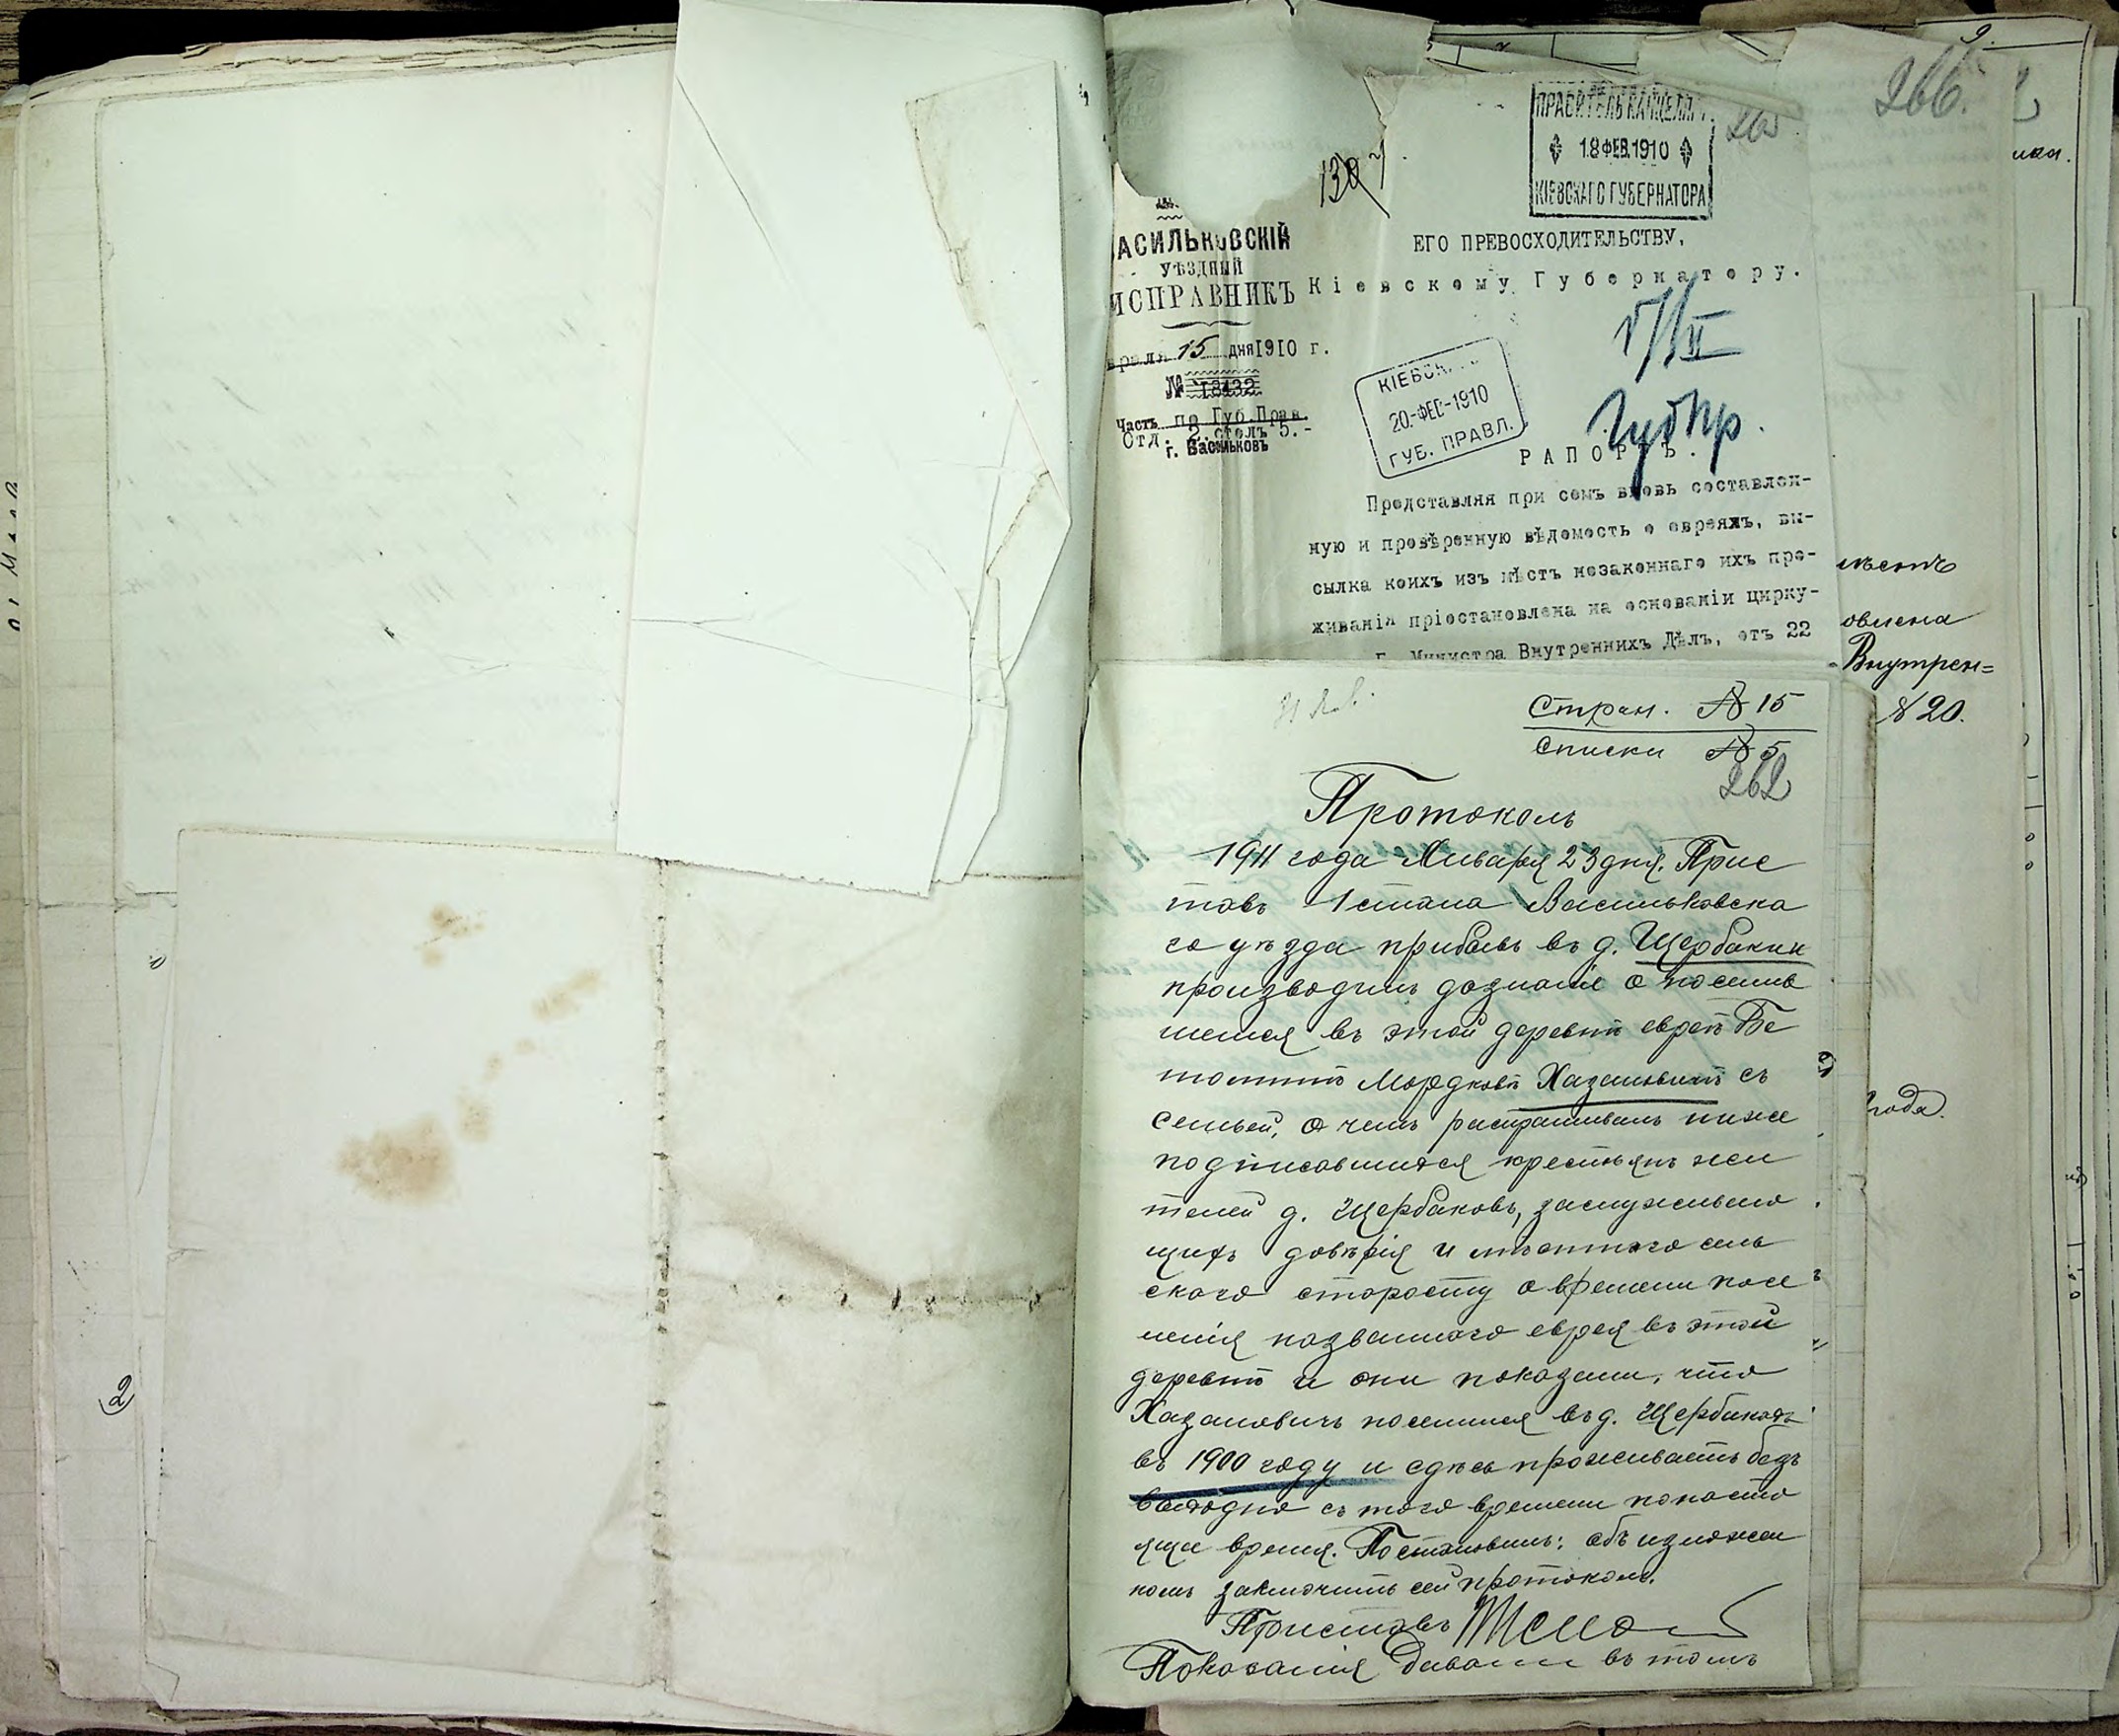 266.
ПРАВИТЕЛЬ КАНЦЕЛЯР.
18 ФЕВ. 1910
КІЕВСКАГО ГУБЕРНАТОРА
АСИЛЬКОВСКІЙ
УѢЗДНЫЙ
ИСПРАВНИКЪ
враля 15 дня 1910 г.
№ 18432
Часть по Губ.Прав.
Отд. 2 столъ 5.-
г. Васильковъ
ЕГО ПРЕВОСХОДИТЕЛЬСТВУ,
Кіевскому Губернатору.
КІЕВСК
20-ФЕВ-1910
ГУБ. ПРАВЛ.
ГубПр.
РАПОРТЪ.
Представляя при семъ вновь составлен-
ную и провѣренную вѣдомость о евреяхъ, вы-
сылка коихъ изъ мѣстъ незаконнаго ихъ про-
живанія пріостановлена на основаніи цирку-
г. Министра Внутреннихъ Дѣлъ, отъ 22
овлена
Внутрен=
№ 20.
года.
Стран. № 15
Списки № 5
262
Протоколъ
1911 года Января 23 дня. Прис
тавъ 1 стана Васильковска
го уѣзда прибывъ въ д. Щербаки
производилъ дознаніе о поселив
шемся въ этой деревнѣ евреѣ Бе
Мордковѣ Хазановичѣ съ
семьей, о чемъ распрашивалъ ниже
подписавшихся крестьянъ жи
телей д. Щербаковъ, заслуживаю
щихъ довѣрія и мѣстнаго сель
скаго старосту о времени посе
ленія названнаго еврея въ этой
деревнѣ и они показали, что
Хазановичъ поселился въ д. Щербакахъ
въ 1900 году и сдѣсь проживаетъ безъ
выѣздно съ того времени по насто
ящее время. Постановилъ: объ изложен
номъ заключить сей протоколъ.
Приставъ
Показанія давали въ томъ
2